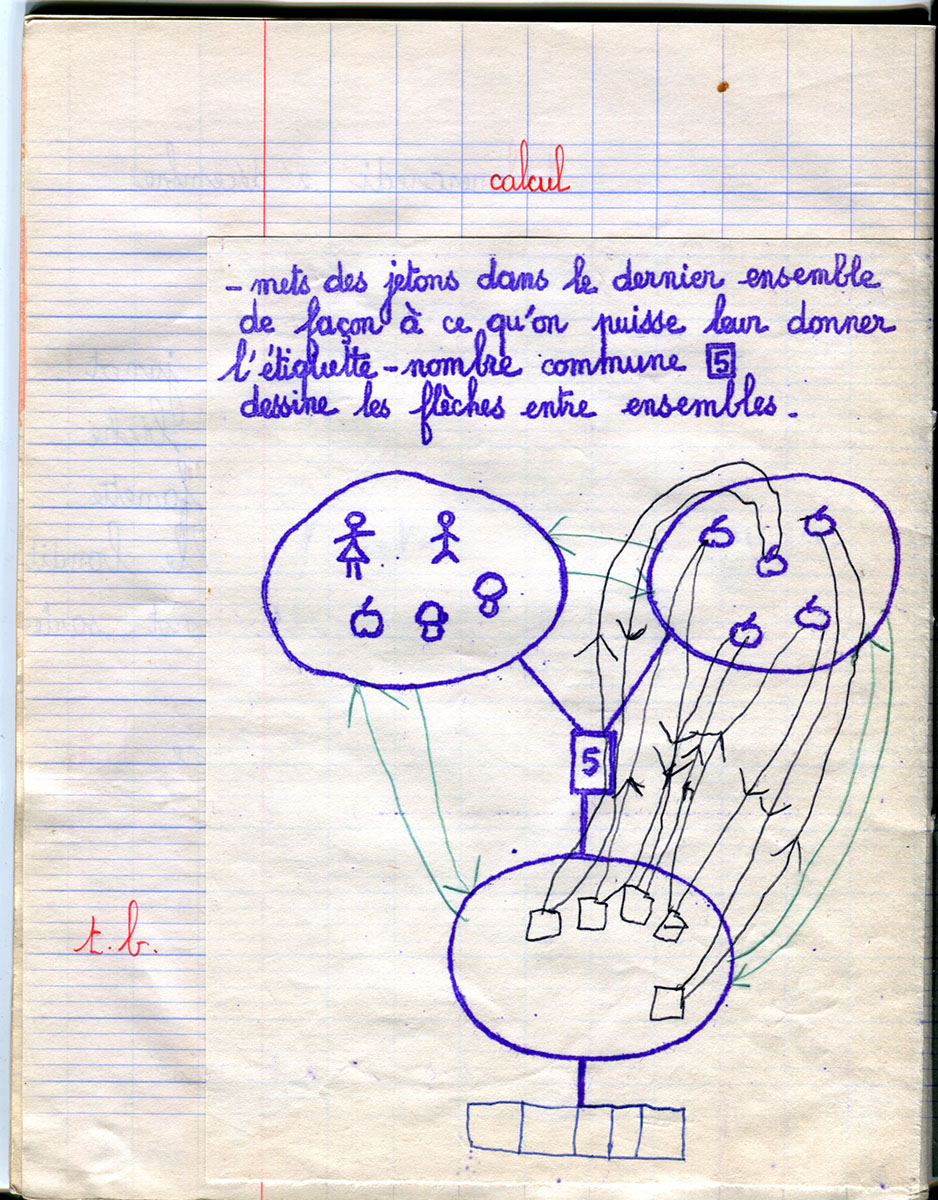 calcul
- mets des jetons dans le dernier ensemble
de façon à ce qu'on puisse leur donner
l'étiquette - nombre commune 5
dessine les flèches entre ensembles.
5
t.b.